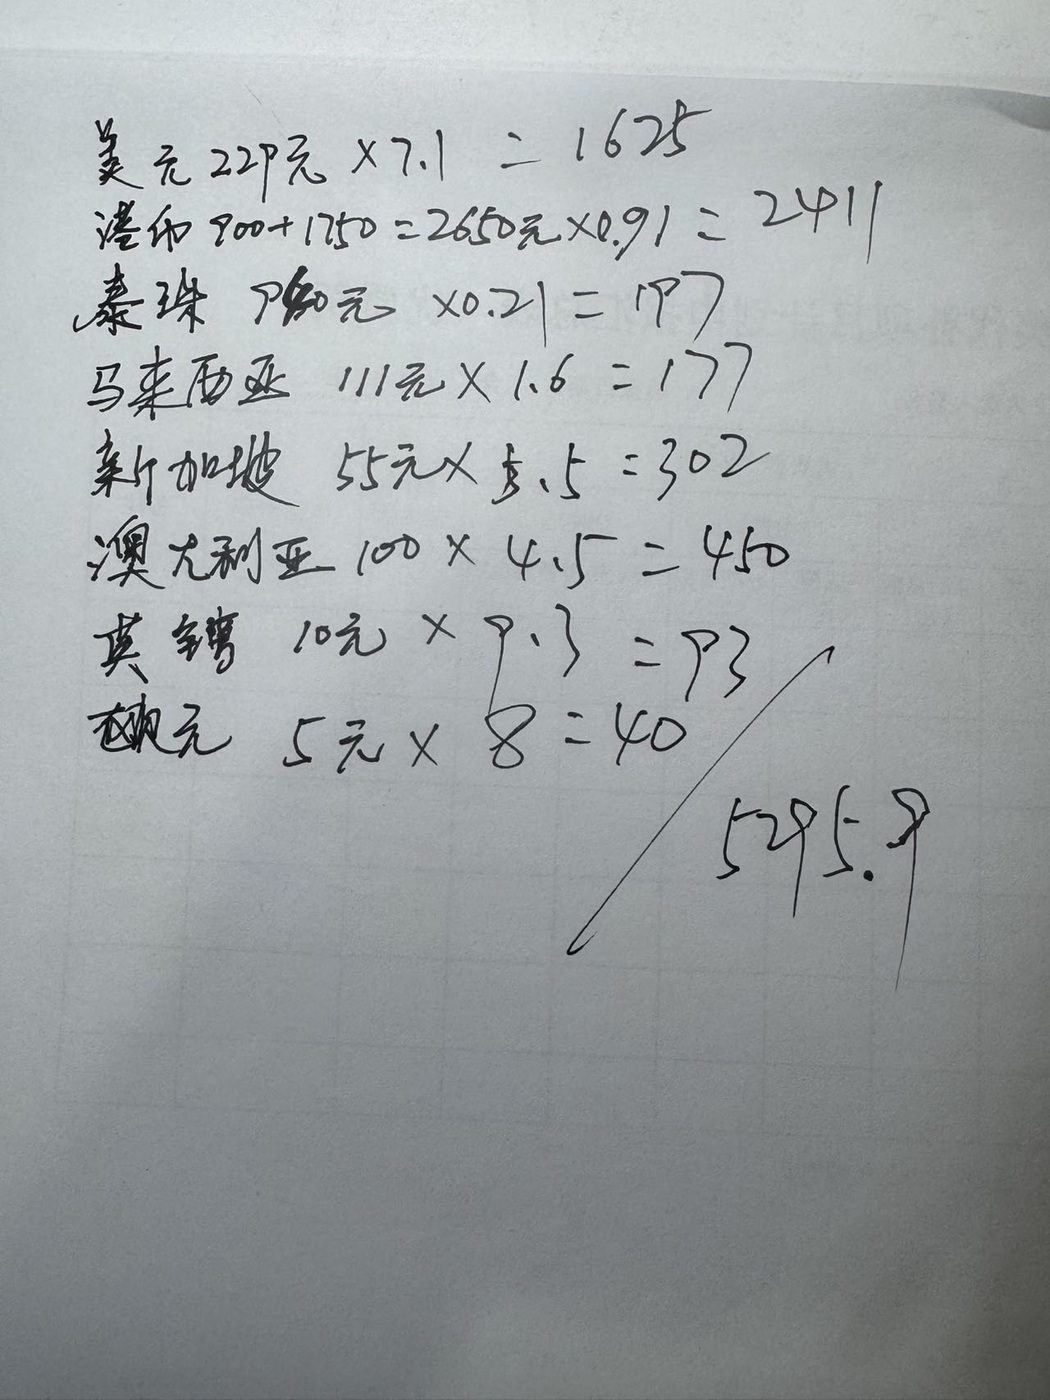 美元229元×7.1=1625
港币900+1750=2650元×0.91=2411
泰珠 940元 ×0.21=197
马来西亚 111元×1.6=177
新加坡 55元×5.5=302
澳大利亚 100×4.5=450
英镑 10元×9.3=93
欧元 5元×8=40
5295.9